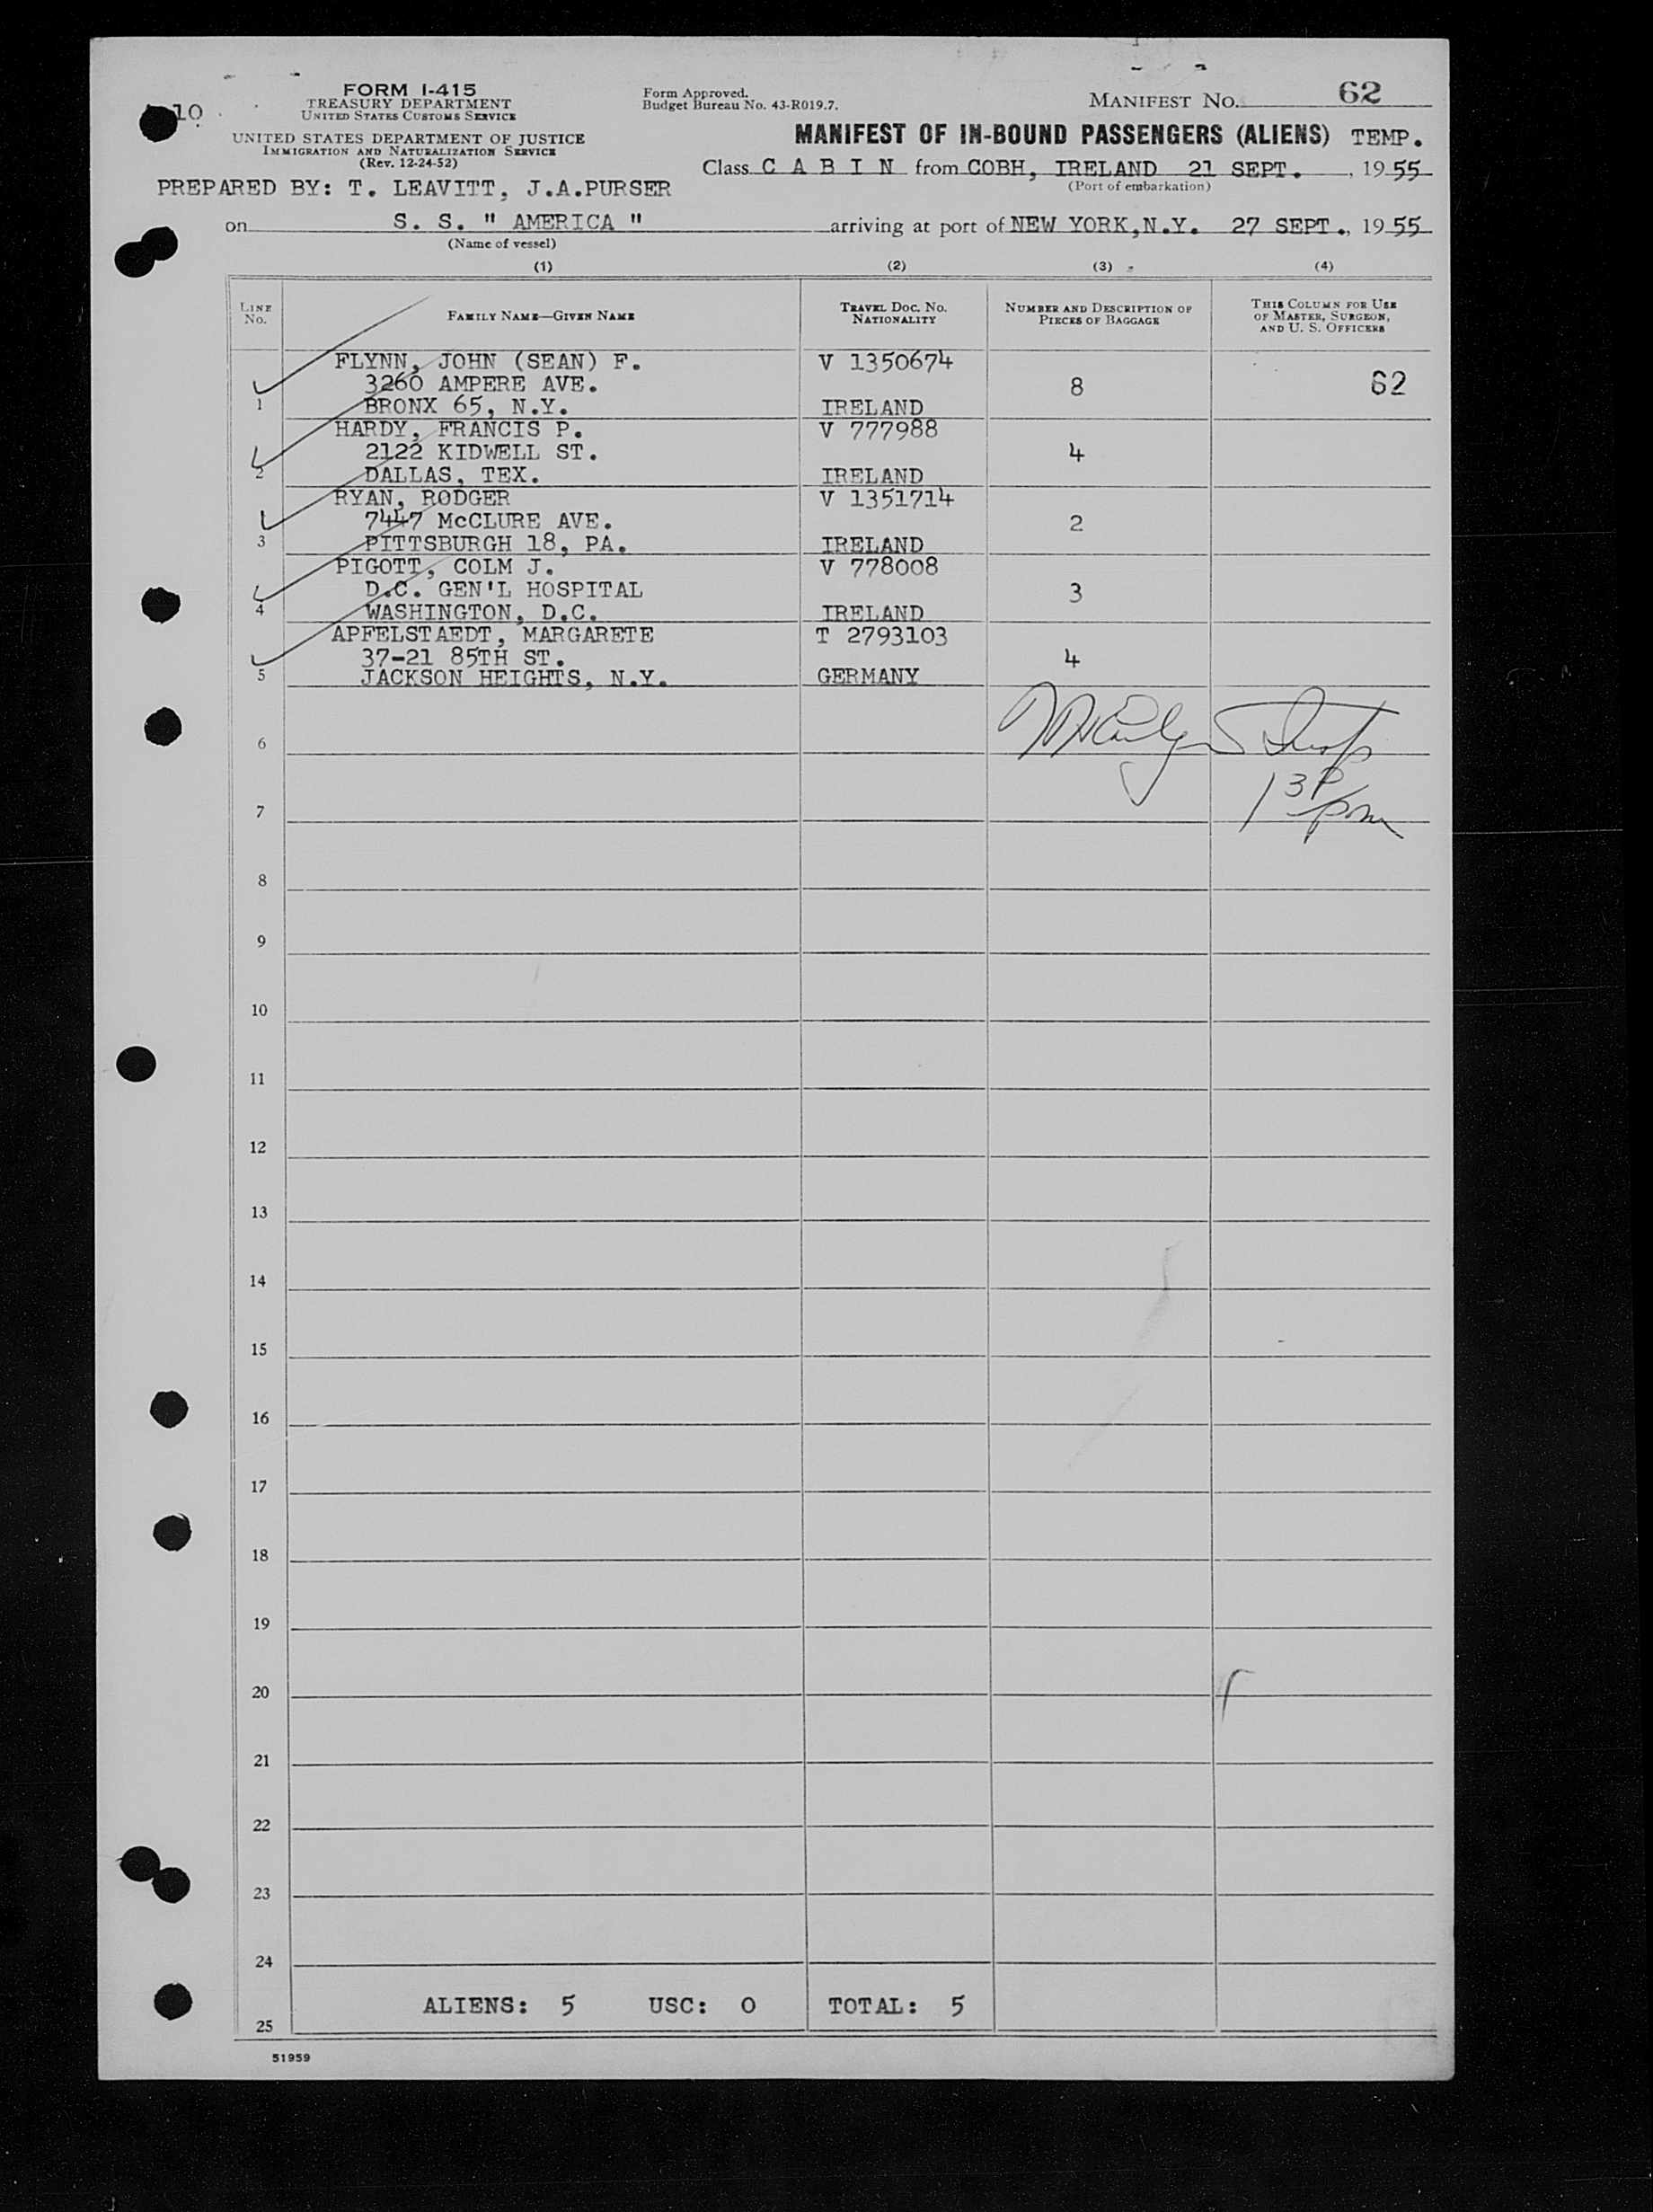 10
FORM I-415
TREASURY DEPARTMENT
UNITED STATES CUSTOMS SERVICE
UNITED STATES DEPARTMENT OF JUSTICE
IMMIGRATION AND NATURALIZATION SERVICE
(Rev. 12-24-52)
Form Approved.
Budget Bureau No. 43-R019.7.
MANIFEST NO. 62
MANIFEST OF IN-BOUND PASSENGERS (ALIENS) TEMP.
Class C A B I N from COBH, IRELAND 21 SEPT. , 1955
(Port of embarkation)
PREPARED BY: T. LEAVITT, J.A.PURSER
on S. S. " AMERICA " arriving at port of NEW YORK,N.Y. 27 SEPT., 1955
(Name of vessel)
(1) (2) (3) (4)
LINE No.
FAMILY NAME—GIVEN NAME
TRAVEL DOC. NO.
NATIONALITY
NUMBER AND DESCRIPTION OF
PIECES OF BAGGAGE
THIS COLUMN FOR USE
OF MASTER, SURGEON,
AND U. S. OFFICERS
FLYNN, JOHN (SEAN) F. V 1350674
3260 AMPERE AVE. 8 62
1 BRONX 65, N.Y. IRELAND
HARDY, FRANCIS P. V 777988
2122 KIDWELL ST. 4
2 DALLAS, TEX. IRELAND
RYAN, RODGER V 1351714
7447 McCLURE AVE. 2
3 PITTSBURGH 18, PA. IRELAND
PIGOTT, COLM J. V 778008
D.C. GEN'L HOSPITAL 3
4 WASHINGTON, D.C. IRELAND
APFELSTAEDT, MARGARETE T 2793103
37-21 85TH ST. 4
5 JACKSON HEIGHTS, N.Y. GERMANY
6
7
8
9
10
11
12
13
14
15
16
17
18
19
20
21
22
23
24
ALIENS: 5 USC: 0 TOTAL: 5
25
51959